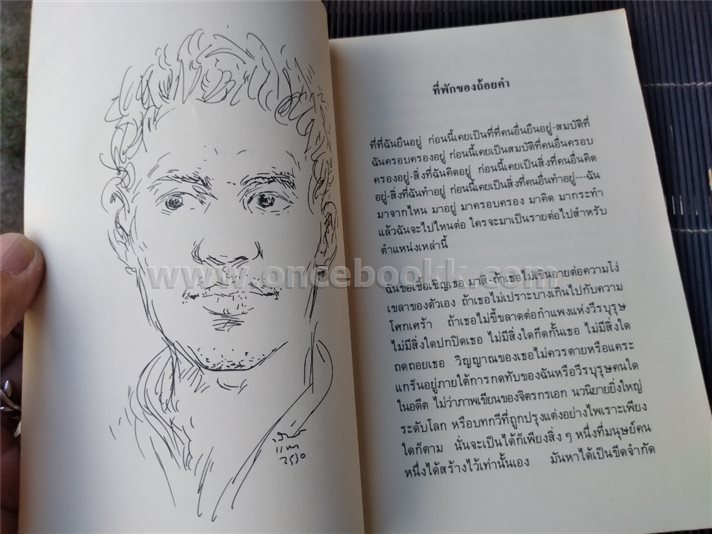 แพา
2530
ที่พักของถ้อยคำ
ที่ที่ฉันยืนอยู่ ก่อนนี้เคยเป็นที่ที่คนอื่นยืนอยู่-สมบัติที่
ฉันครอบครองอยู่ ก่อนนี้เคยเป็นสมบัติที่คนอื่นครอบ
ครองอยู่-สิ่งที่ฉันคิดอยู่ ก่อนนี้เคยเป็นสิ่งที่คนอื่นคิด
อยู่-สิ่งที่ฉันทำอยู่ ก่อนนี้เคยเป็นสิ่งที่คนอื่นทำอยู่---ฉัน
มาจากไหน มาอยู่ มาครอบครอง มาคิด มากระทำ
แล้วฉันจะไปไหนต่อ ใครจะมาเป็นรายต่อไปสำหรับ
ตำแหน่งเหล่านี้
ฉันขอเชื้อเชิญเธอ มาสิ-ถ้าเธอไม่เกินอายต่อความโง่
เขลาของตัวเอง ถ้าเธอไม่เปราะบางเกินไปกับความ
โศกเศร้า ถ้าเธอไม่ขี้ขลาดต่อกำแพงแห่งวีรบุรุษ
ไม่มีสิ่งใดปกปิดเธอ ไม่มีสิ่งใดกีดกั้นเธอ ไม่มีสิ่งใด
ถดถอยเธอ วิญญาณของเธอไม่ควรตายหรือแคระ
แกร็นอยู่ภายใต้การกดทับของฉันหรือวีรบุรุษคนใด
ในอดีต ไม่ว่าภาพเขียนของจิตรกรเอก นวนิยายยิ่งใหญ่
ระดับโลก หรือบทกวีที่ถูกปรุงแต่งอย่างไพเราะเพียง
ใดก็ตาม นั่นจะเป็นได้ก็เพียงสิ่ง ๆ หนึ่งที่มนุษย์คน
หนึ่งได้สร้างไว้เท่านั้นเอง มันหาได้เป็นขีดจำกัด
www.oncebookk.com